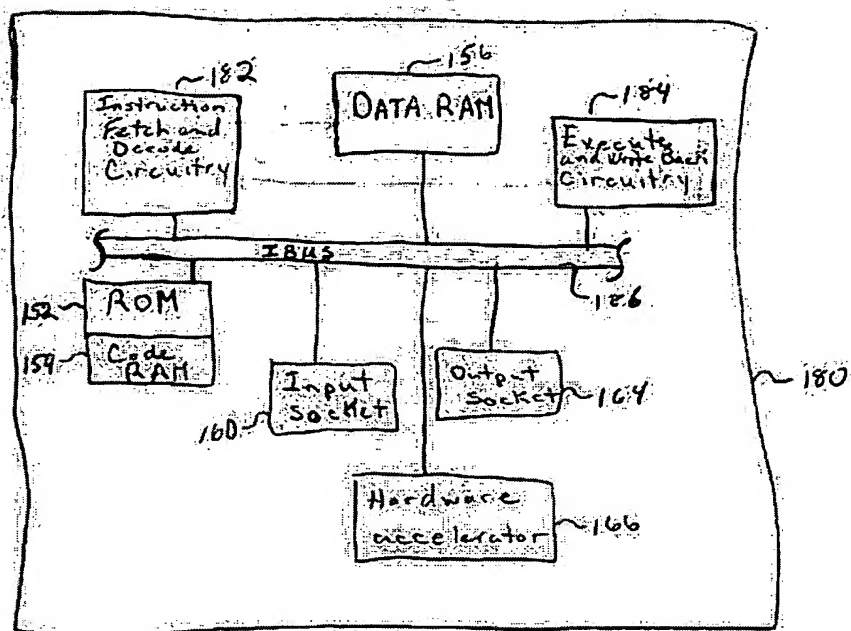 182
156
184
Instruction
Fetch and
Decode
Circuitry
DATA RAM
Execute
and Write Back
Circuitry
IBUS
186
152
ROM
154
Code
RAM
Input
Socket
160
Output
Socket
164
180
Hardware
accelerator
166